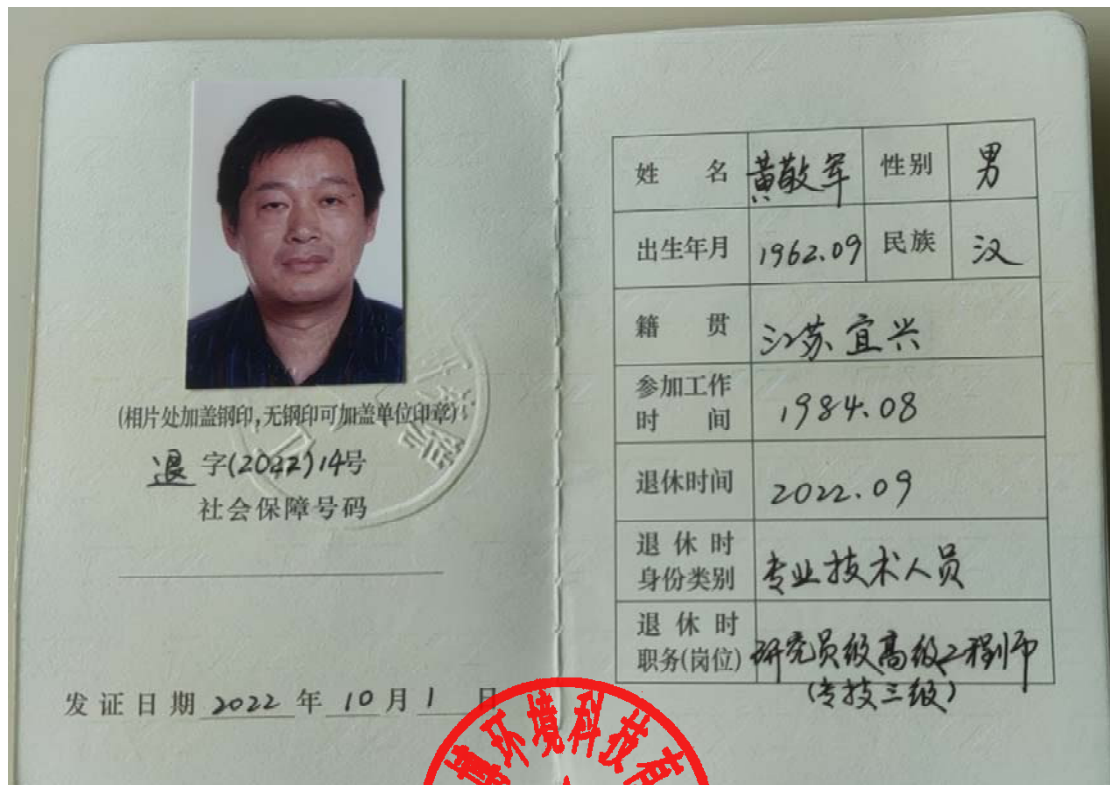 (相片处加盖钢印,无钢印可加盖单位印章)
退 字(2022)14号
社会保障号码
发证日期 2022 年 10 月 1 日
姓 名 黄敬军 性别 男
出生年月 1962.09 民族 汉
籍 贯 江苏宜兴
参加工作
时 间 1984.08
退休时间 2022.09
退休时
身份类别 专业技术人员
退休时
职务(岗位) 研究员级高级工程师
(专技三级)
环境科技有